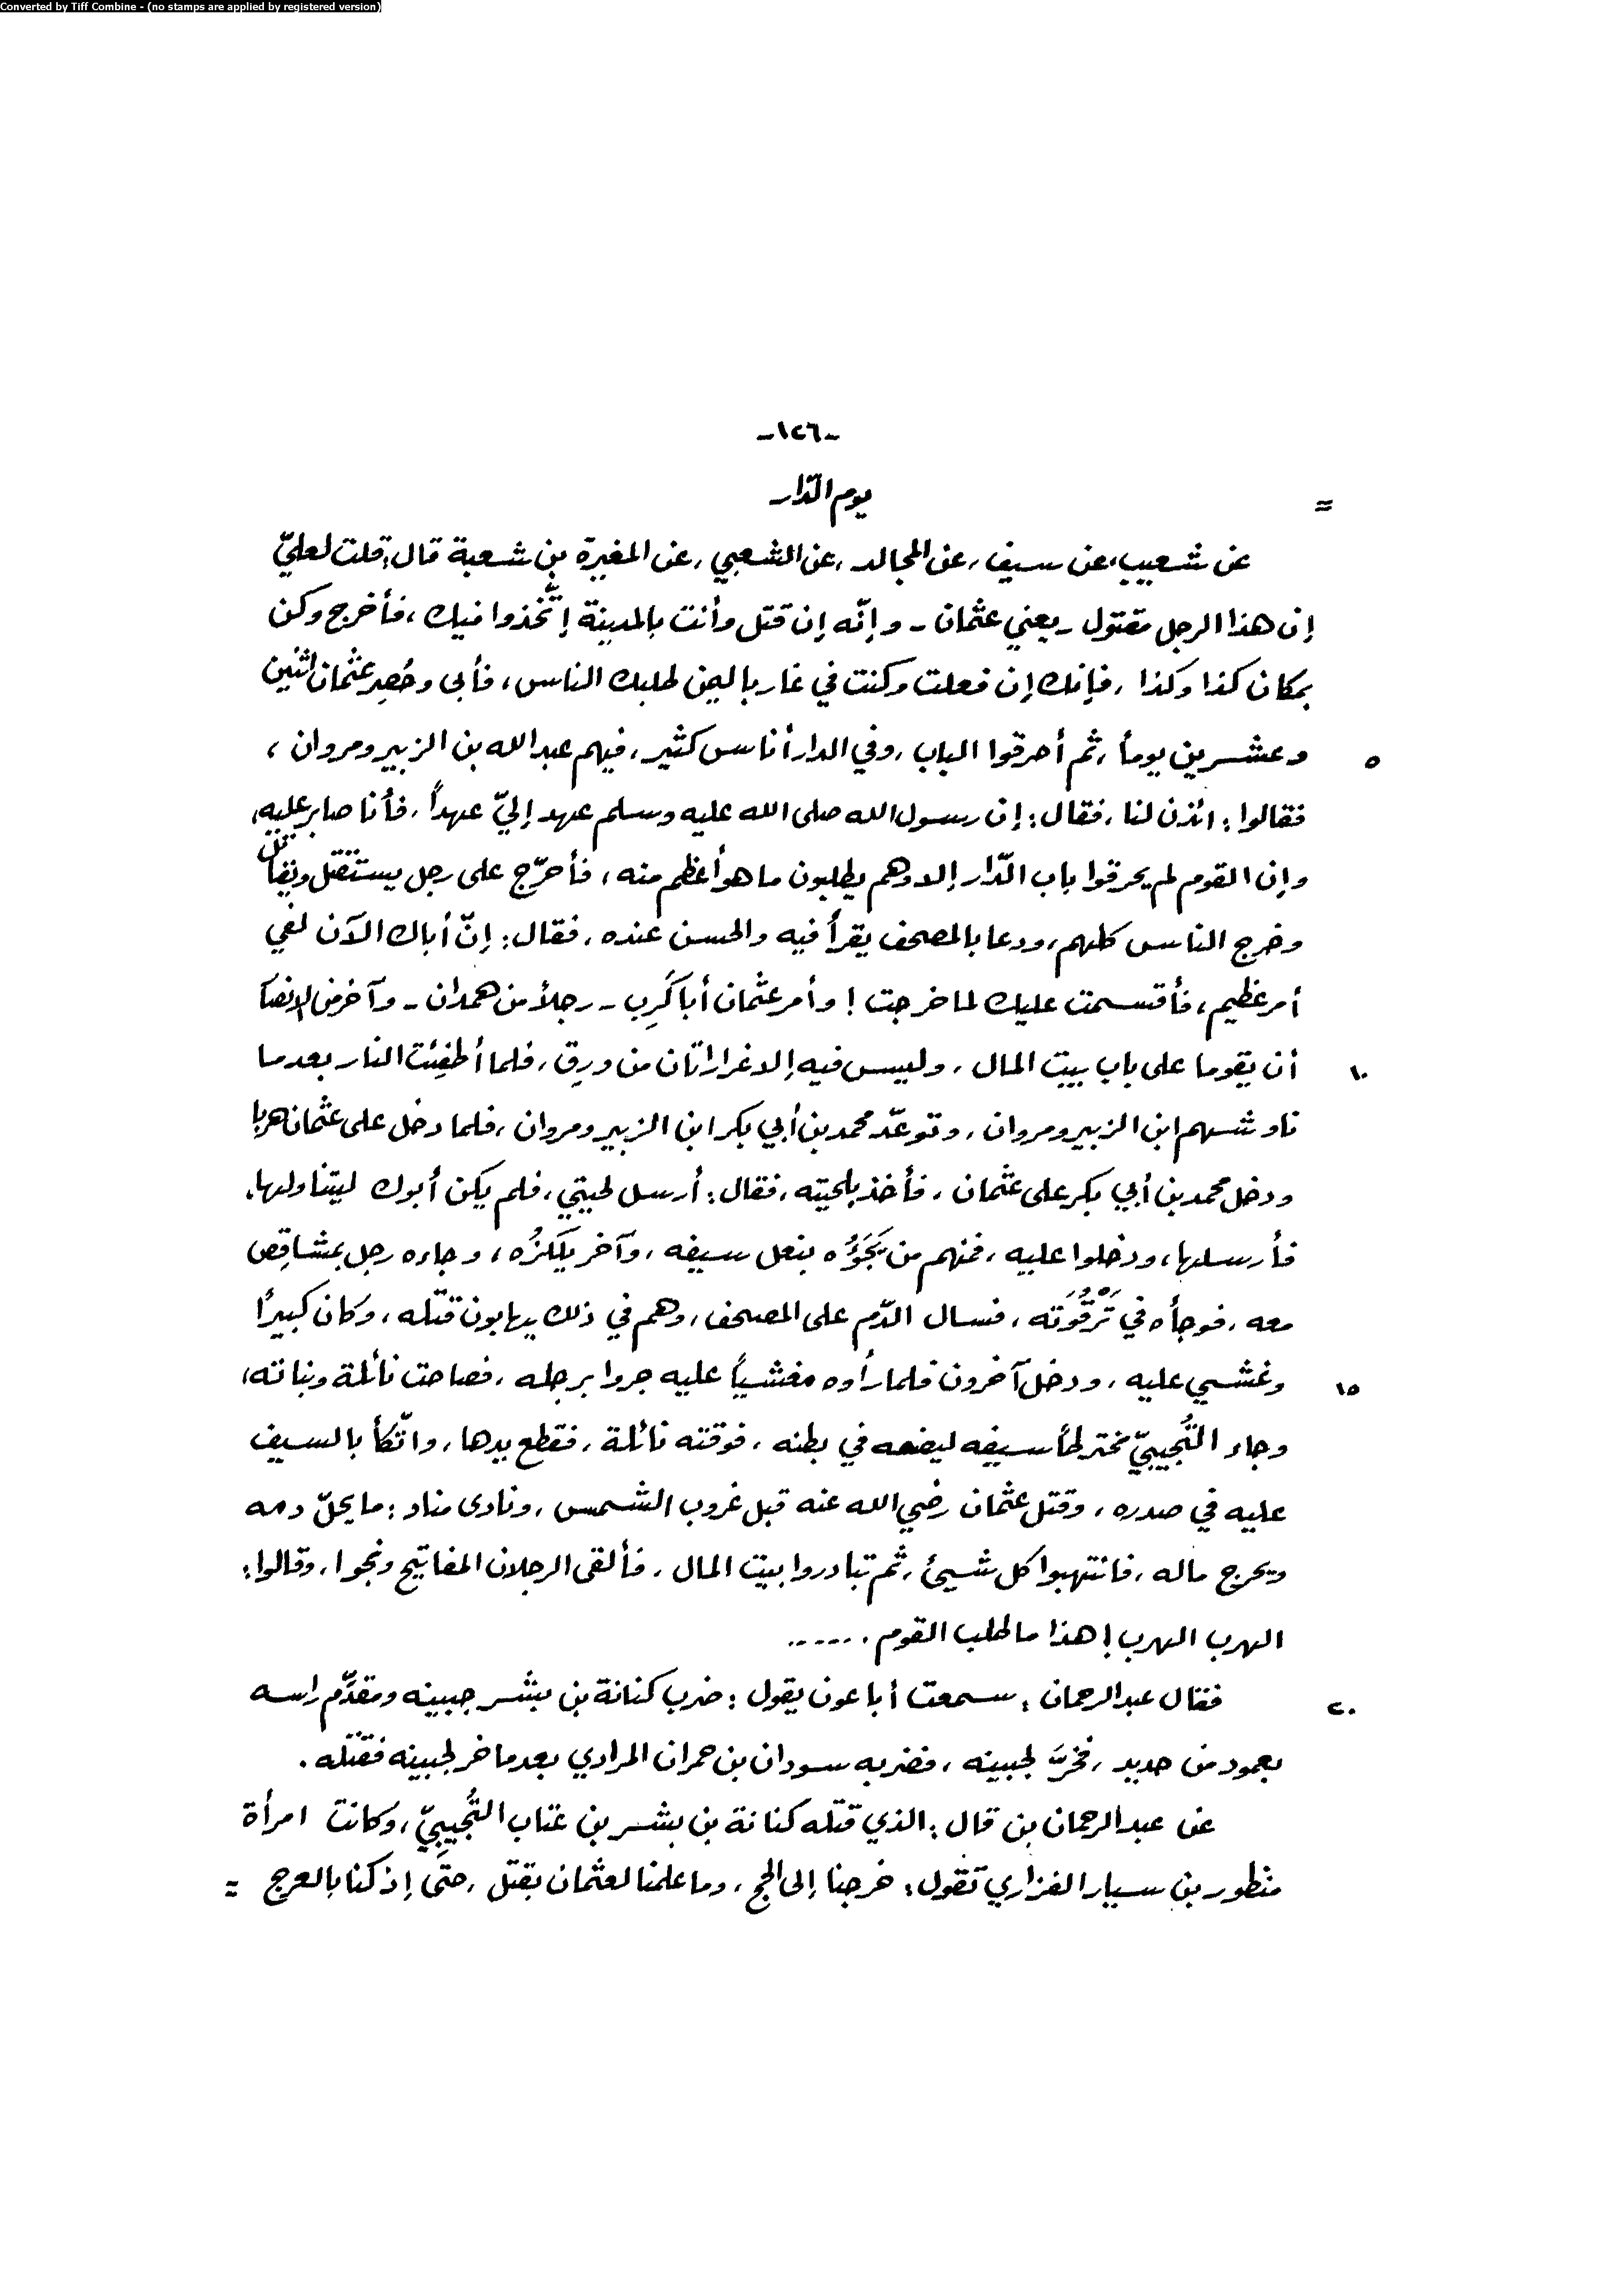 Converted by Tiff Combine - (no stamps are applied by registered version)
-١٢٦-
= يوم الدّار
عن شعيب، عن سيف، عن المجالد، عن الشعبي، عن المغيرة بن شعبة قال: قلت لعليّ
إن هذا الرجل مقتول - يعني عثمان - وإنّه إن قتل وأنت بالمدينة إتّخذوا فيك، فأخرج وكن
بمكان كذا وكذا، فإنك إن فعلت وكنت في غار باليمن طلبك الناس، فأبى وحُصِر عثمان اثنين
٥ وعشرين يوماً، ثم أحرقوا الباب، وفي الدار أناس كثير، فيهم عبد الله بن الزبير ومروان،
فقالوا: ائذن لنا، فقال: إن رسول الله صلى الله عليه وسلم عهد إليّ عهداً، فأنا صابر عليه،
وإن القوم لم يحرقوا باب الدّار إلا وهم يطلبون ما هو أعظم منه، فأحرّج على رجل يستقتل ويقاتل
وخرج الناس كلهم، ودعا بالمصحف يقرأ فيه والحسن عنده، فقال: إنّ أباك الآن لفي
أمر عظيم، فأقسمت عليك لما خرجت! وأمر عثمان أبا كَرِب - رجلاً من همدان - وآخر من الانصا
١٠ أن يقوما على باب بيت المال، وليس فيه إلا غرارتان من ورِق، فلما أطفِئت النار بعدما
ناوشهم ابن الزبير ومروان، وتوعّد محمد بن أبي بكر ابن الزبير ومروان، فلما دخل على عثمان هربا
ودخل محمد بن أبي بكر على عثمان، فأخذ بلحيته، فقال: أرسل لحيتي، فلم يكن أبوك ليتناولها.
فأرسلها، ودخلوا عليه، فمنهم من يَجَؤُه بنعل سيفه، وآخر يلكزُه، وجاءه رجل بمشاقِص
معه، فوجأه في تَرْقُوَته، فسال الدّم على المصحف، وهم في ذلك يهابون قتله، وكان كبيرًا
١٥ وغشي عليه، ودخل آخرون فلما رأوه مغشياً عليه جروا برجله، فصاحت نائلة وبناته،
وجاء التُّجيبيّ مخترطاً سيفه ليضعه في بطنه، فوقته نائلة، فقطع يدها، واتّكأ بالسيف
عليه في صدره، وقتل عثمان رضي الله عنه قبل غروب الشمس، ونادى مناد: ما يحلّ دمه
ويحرج ماله، فانتهبوا كل شيئ، ثم تبادروا بيت المال، فألقى الرجلان المفاتيح ونجوا، وقالوا:
الهرب الهرب! هذا ما طلب القوم. .....
٢٠ فقال عبد الرحمان: سمعت أبا عون يقول: ضرب كنانة بن بشر جبينه ومقدَّم راسه
بعمود من حديد، فخرَّ لجبينه، فضربه سودان بن حمران المرادي بعدما خر لجبينه فقتله.
عن عبد الرحمان بن قال: الذي قتله كنانة بن بشر بن عتاب التُّجيبِيّ، وكانت امرأة
منظور بن سيار الفزاري تقول: خرجنا إلى الحج، وما علمنا لعثمان بقتل، حتى إذ كنا بالعرج =